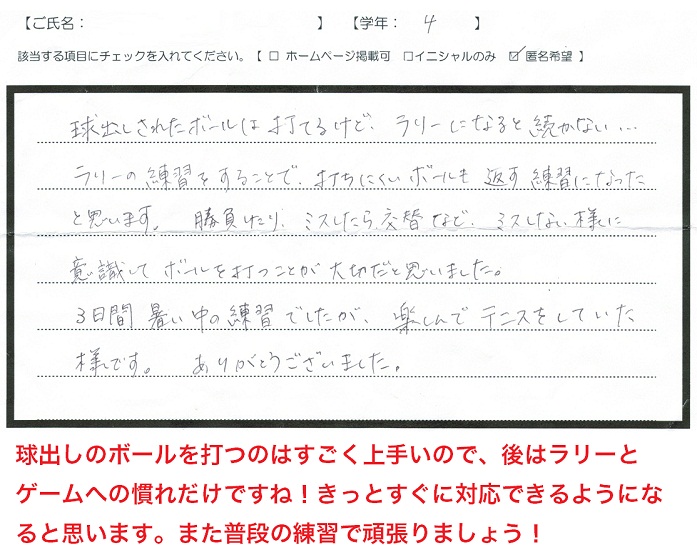 【ご氏名： 】 【学年： 4 】
該当する項目にチェックを入れてください。【 □ ホームページ掲載可 □イニシャルのみ ☑ 匿名希望 】
球出しされたボールは打てるけど、ラリーになると続かない…
ラリーの練習をすることで、打ちにくいボールも返す練習になった
と思います。勝負したり、ミスしたら交替など、ミスしない様に
意識してボールを打つことが大切だと思いました。
3日間暑い中の練習でしたが、楽しんでテニスをしていた
様です。ありがとうございました。
球出しのボールを打つのはすごく上手いので、後はラリーと
ゲームへの慣れだけですね！きっとすぐに対応できるようにな
ると思います。また普段の練習で頑張りましょう！